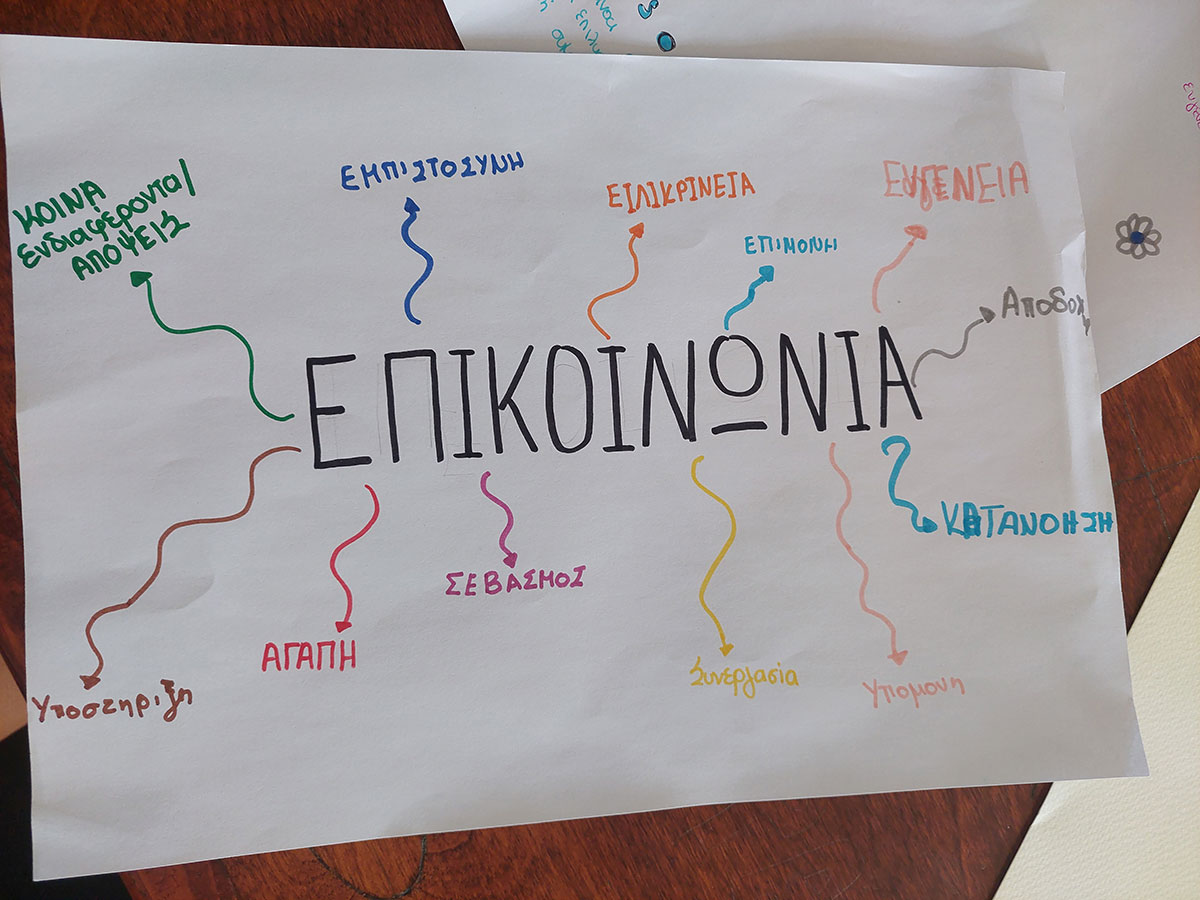 ΚΟΙΝΑ
ενδιαφεροντα/
ΑΠΟΨΕΙΣ
ΕΜΠΙΣΤΟΣΥΝΗ
ΕΙΛΙΚΡΙΝΕΙΑ
ΕΥΓΕΝΕΙΑ
ΕΠΙΜΟΝΗ
Αποδοχη
ΕΠΙΚΟΙΝΩΝΙΑ
ΚΑΤΑΝΟΗΣΗ
ΣΕΒΑΣΜΟΣ
ΑΓΑΠΗ
Υποστηριξη
Συνεργασία
Υπομονη